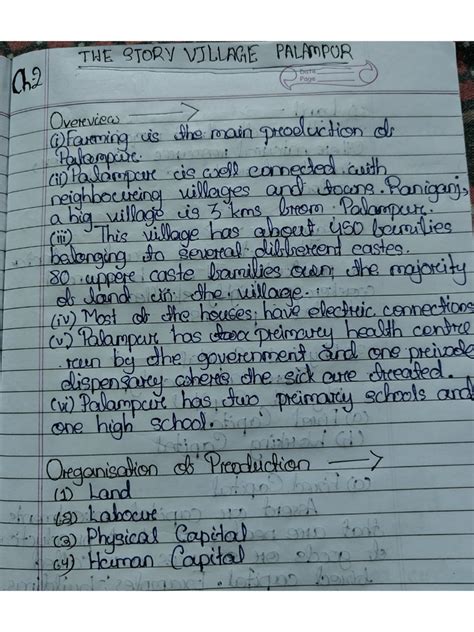 THE STORY VILLAGE PALAMPUR
Ch:2
Date
Page
Overview →
(i) Farming is the main production of
Palampur.
(ii) Palampur is well connected with
neighbouring villages and towns. Raniganj,
a big village is 3 kms from Palampur.
(iii) This village has about 450 families
belonging to several different castes.
80 upper caste families own the majority
of land in the village.
(iv) Most of the houses have electric connections
(v) Palampur has primary health centre
run by the government and one private
dispensary where the sick are treated.
(vi) Palampur has two primary schools and
one high school.
Organisation of Production →
(1) Land
(2) Labour
(3) Physical Capital
(4) Human Capital